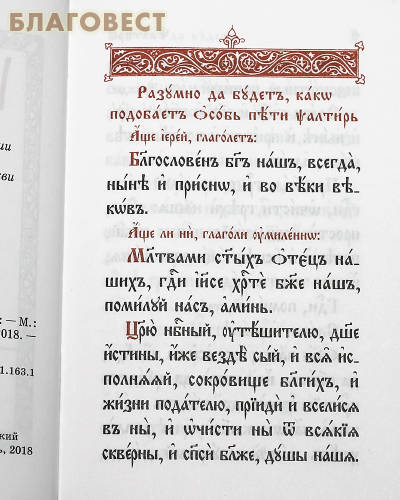 БЛАГОВЕСТ
Разꙋ́мно да бꙋ́детъ, ка́кѡ
подоба́етъ ѻ҆со́бь пѣ́ти ѱалти́рь
А҆́ще і҆ере́й, глаго́летъ:
Бл҃гослове́нъ бг҃ъ на́шъ, всегда̀,
ны́нѣ и҆ при́снѡ, и҆ во вѣ́ки вѣ-
кѡ́въ.
А҆́ще ли нѝ, глаго́ли ᲂу҆миле́ннѡ:
Мл҃твами ст҃ы́хъ ѻ҆те́цъ на́-
шихъ, гдⷭ҇и і҆и҃се хрⷭ҇тѐ бж҃е на́шъ,
поми́лꙋй на́съ, а҆ми́нь.
Цр҃ю̀ нбⷭ҇ный, ᲂу҆тѣ́шителю, дш҃е
и҆́стины, и҆́же вездѣ̀ сы́й, и҆ всѧ̑ и҆с-
полнѧ́ѧй, сокро́вище бл҃ги́хъ, и҆
жи́зни пода́телю, прїидѝ и҆ всели́сѧ
въ ны̀, и҆ ѡ҆чи́сти ны̀ ѿ всѧ́кїѧ
скве́рны, и҆ сп҃сѝ бл҃же, дꙋ́шы на́шѧ.
ии
кви
: — М.:
018. —
1.163.1
кий
ь, 2018